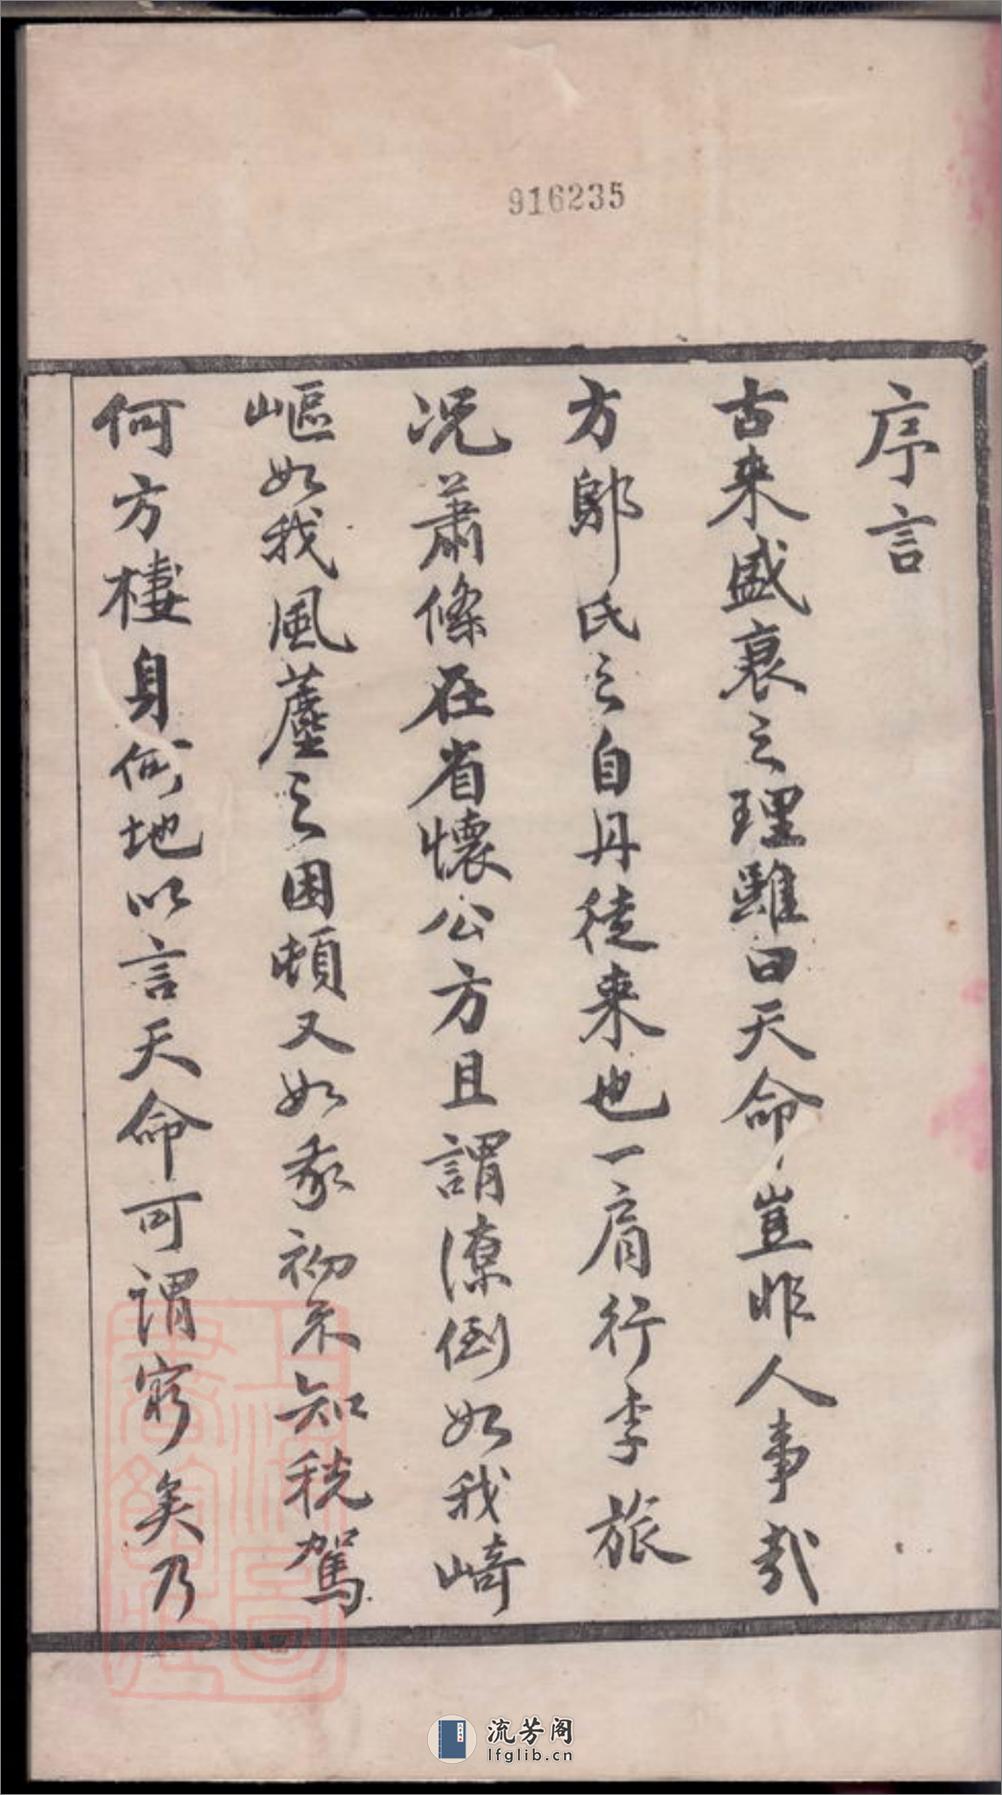 916235
序言
古来盛衰之理雖曰天命豈非人事哉
方鄔氏之自丹徒来也一肩行李旅
况蕭條在省懷公方且謂潦倒如我崎
嶇如我風塵之困頓又如我初不知税駕
何方棲身何地以言天命可謂窮矣乃
上海圖書館藏
流芳阁
lfglib.cn